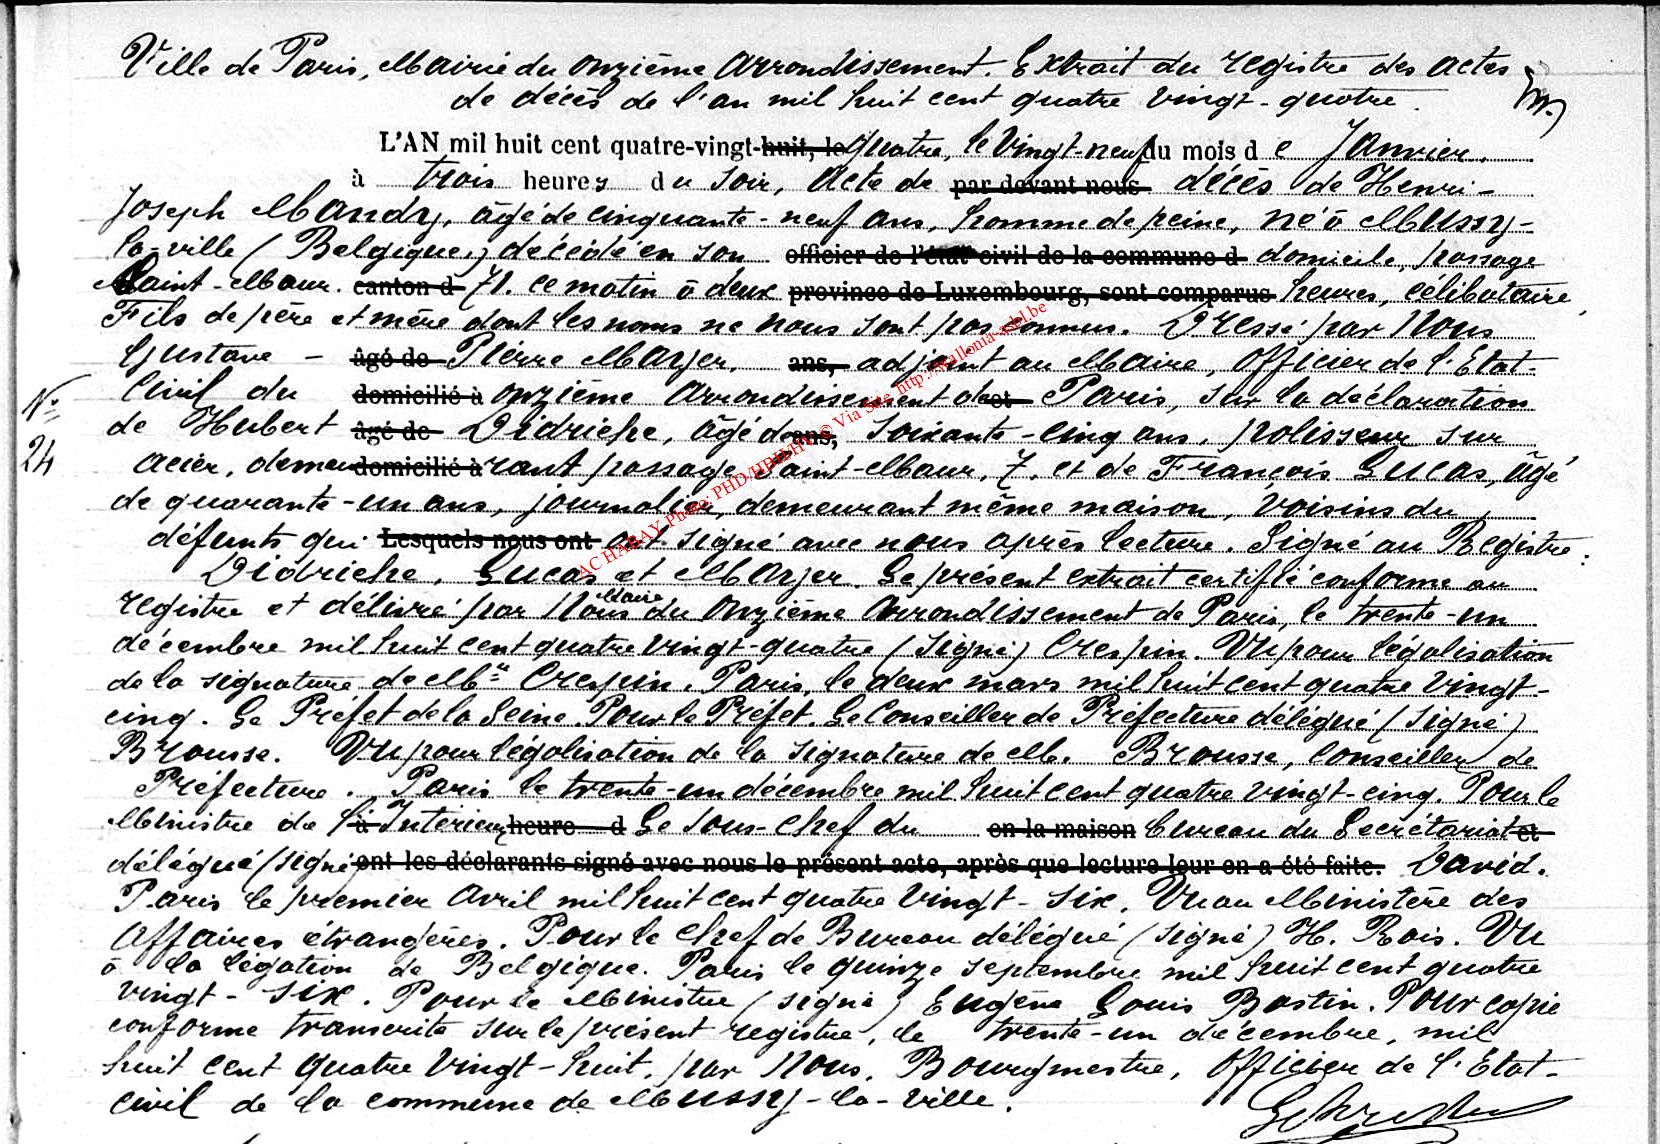 Ville de Paris, Mairie du onzième Arrondissement. Extrait du registre des actes
de décès de l'an mil huit cent quatre vingt-quatre.
L'AN mil huit cent quatre-vingt-huit, le quatre, le vingt-neuf du mois d e Janvier.
à trois heures du soir, Acte de par devant nous décès de Henri-
Joseph Mandy, âgé de cinquante-neuf ans, homme de peine, né à Mussy-
la-ville (Belgique,) décédé en son officier de l'état civil de la commune d domicile, passage
Saint-Maur. canton d 71. ce matin à deux province de Luxembourg, sont comparus heures, célibataire,
Fils de père et mère dont les noms ne nous sont pas connus. Dressé par Nous
Gustave - âgé de Pierre Marjer, ans, adjoint au Maire, Officier de l'Etat-
N° Civil du domicilié à onzième Arrondissement de et Paris, sur la déclaration
de Hubert âgé de Didriche, âgé de ans, soixante-cinq ans, polisseur sur
24 acier, demeu domicilié à rant passage Saint-Maur, 7. et de François Lucas, âgé
de quarante-un ans, journalier, demeurant même maison, voisins du
défunts qui Lesquels nous ont ont signé avec nous après lecture. Signé au Registre:
Didriche, Lucas et Marjer. Le présent extrait certifié conforme au
registre et délivré par Nous Maire du onzième Arrondissement de Paris, le trente-un
décembre mil huit cent quatre vingt-quatre (signé) Crespin. Vu pour légalisation
de la signature de Mr Crespin. Paris, le deux mars mil huit cent quatre vingt-
cinq. Le Préfet de la Seine. Pour le Préfet. Le Conseiller de Préfecture délégué (signé)
Brousse. Vu pour légalisation de la signature de M. Brousse, Conseiller de
Préfecture. Paris le trente-un décembre mil huit cent quatre vingt-cinq. Pour le
Ministre de l' à Intérieur heure d Le Sous-chef du en la maison bureau du Secrétariat et
délégué (signé) ont les déclarants signé avec nous le présent acte, après que lecture leur en a été faite. David.
Paris le premier Avril mil huit cent quatre vingt-six. Vu au Ministère des
Affaires étrangères. Pour le chef de Bureau délégué (signé) H. Rois. Vu
à la légation de Belgique. Paris le quinze septembre mil huit cent quatre
vingt-six. Pour le Ministre (signé) Eugène Louis Bastin. Pour copie
conforme transcrite sur le présent registre, le trente-un décembre, mil
huit cent quatre vingt-huit, par Nous, Bourgmestre, Officier de l'Etat-
civil de la commune de Mussy-la-ville.
AC HABAY Photo: PHD/HBHHV © Via Site http://wallonia-asbl.be